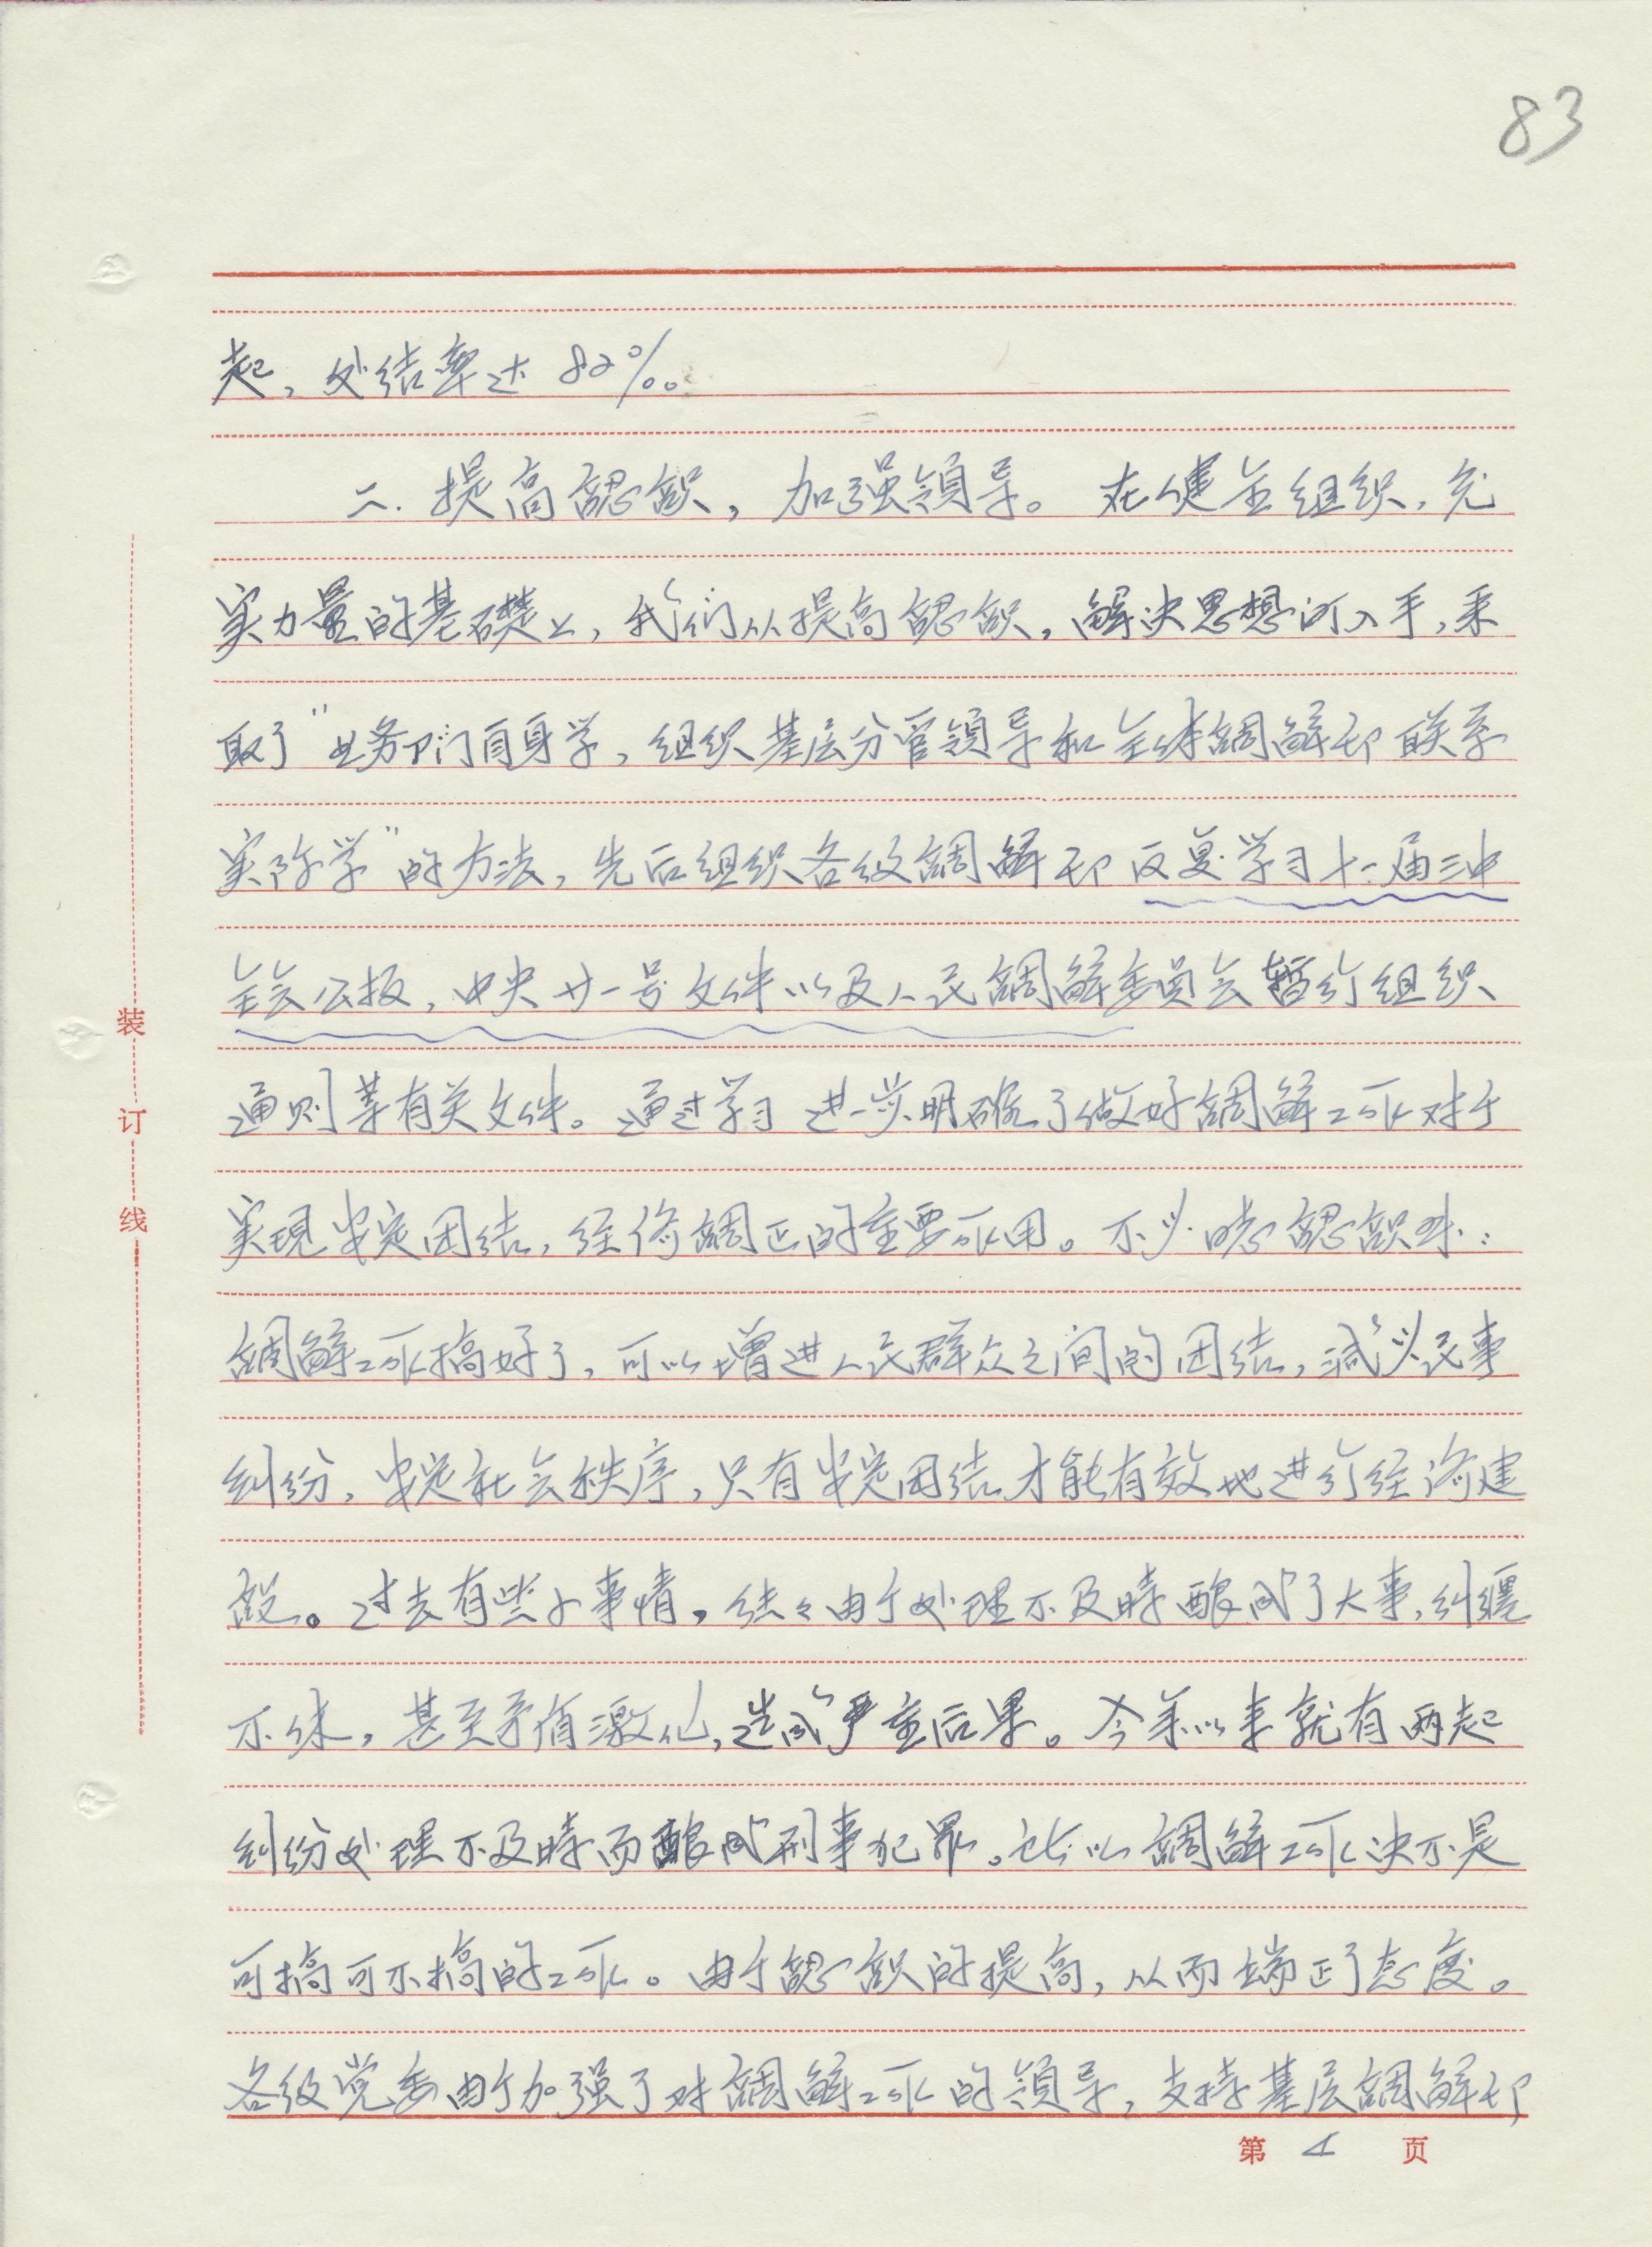 83
起，处结率达82%。
二.提高認識，加强領导。在健全组织，充
实力量的基礎上，我们从提高認識，解决思想问入手，采
取了“业务部门自身学，组织基层分管領导和全体調解干部联系
实际学”的方法，先后组织各级調解干部反复学习十一届三中
全会公报，中央廿一号文件以及人民調解委员会暂行组织
通则等有关文件。通过学习进一步明确了做好調解工作对于
实現安定团结，经济調正的重要作用。不少同志認識到：
調解工作搞好了，可以增进人民群众之间的团结，减少民事
纠纷，安定社会秩序，只有安定团结才能有效地进行经济建
設。过去有些小事情，往々由于处理不及時酿成了大事，纠纏
不休，甚至矛盾激化，造成严重后果。今年以来就有两起
纠纷处理不及時而酿成刑事犯罪。所以調解工作决不是
可搞可不搞的工作。由于認識的提高，从而端正了态度。
各级党委由于加强了对調解工作的領导，支持基层調解干部
装
订
线
第 4 页